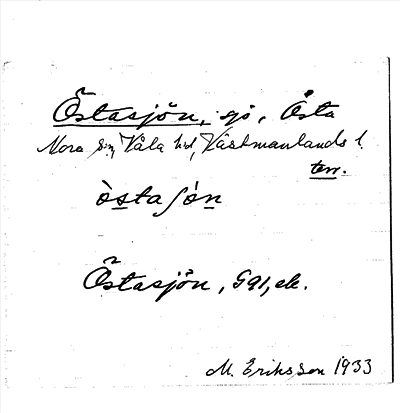 Östasjön, sjö, Östa
Nora sn, Våla hd, Västmanlands l.
terr.
òstaʃón
Östasjön, G91, ek.
M. Eriksson 1933